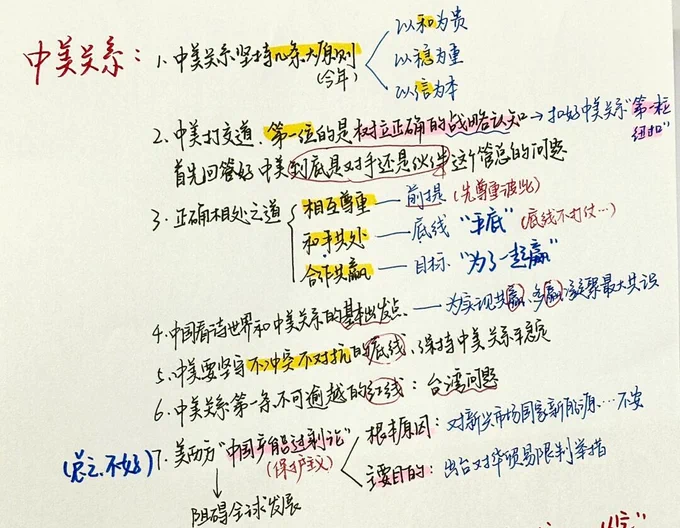 中美关系：
1.中美关系坚持几条大原则
(今年)
以和为贵
以稳为重
以信为本
2.中美打交道,第一位的是树立正确的战略认知→扣好中美关系"第一粒
纽扣"
首先回答好中美到底是对手还是伙伴这个管总的问题
3.正确相处之道
相互尊重—前提(先尊重彼此)
和平共处—底线"平底"(底线不打仗…)
合作共赢—目标"为了一起赢"
4.中国看待世界和中美关系的基本出发点.—为实现共赢、多赢凝聚最大共识
5.中美要坚守不冲突不对抗的底线,保持中美关系平稳
6.中美关系第一条不可逾越的红线：台湾问题
(总之,不好)
7.美西方"中国产能过剩论"
(保护主义)
根本原因：对新兴市场国家新能源…不安
主要目的：出台对华贸易限制举措
↓
阻碍全球发展